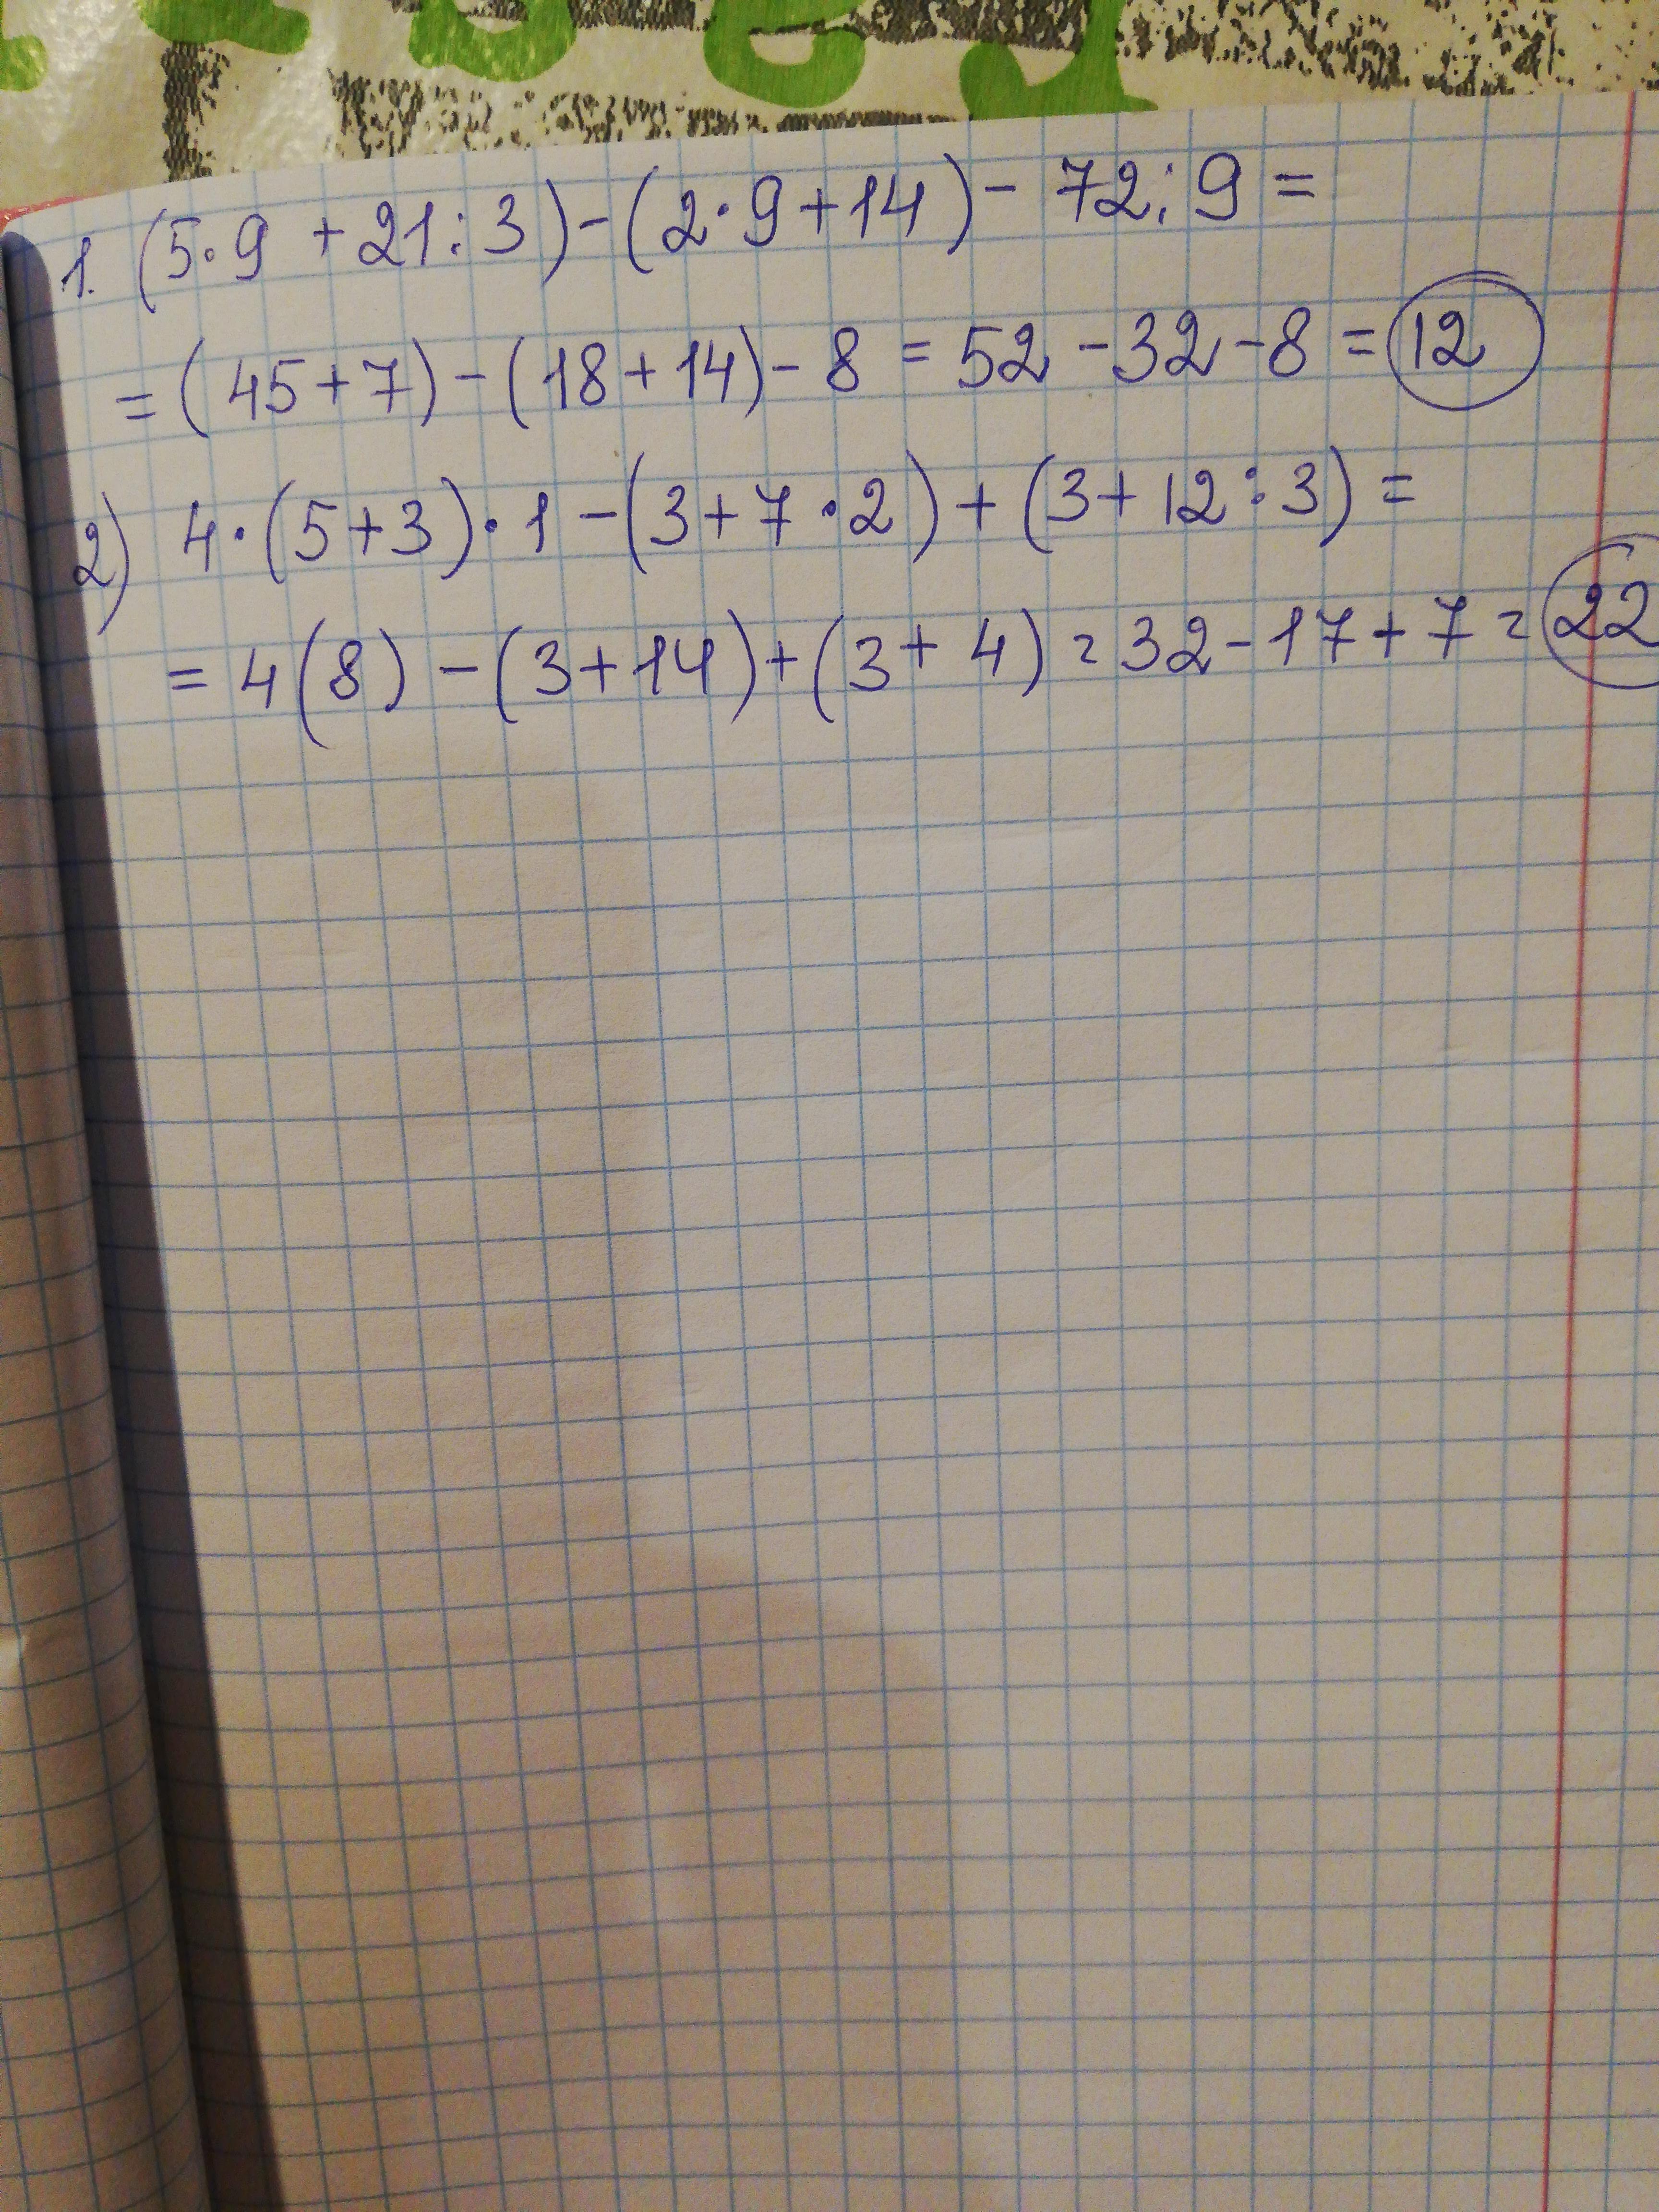 1. (5·9 + 21:3) - (2·9+14) - 72:9 =
= (45+7) - (18+14) - 8 = 52 - 32 - 8 = 12
2) 4·(5+3)·1 - (3+7·2) + (3+12:3) =
= 4(8) - (3+14) + (3+4) = 32 - 17 + 7 = 22